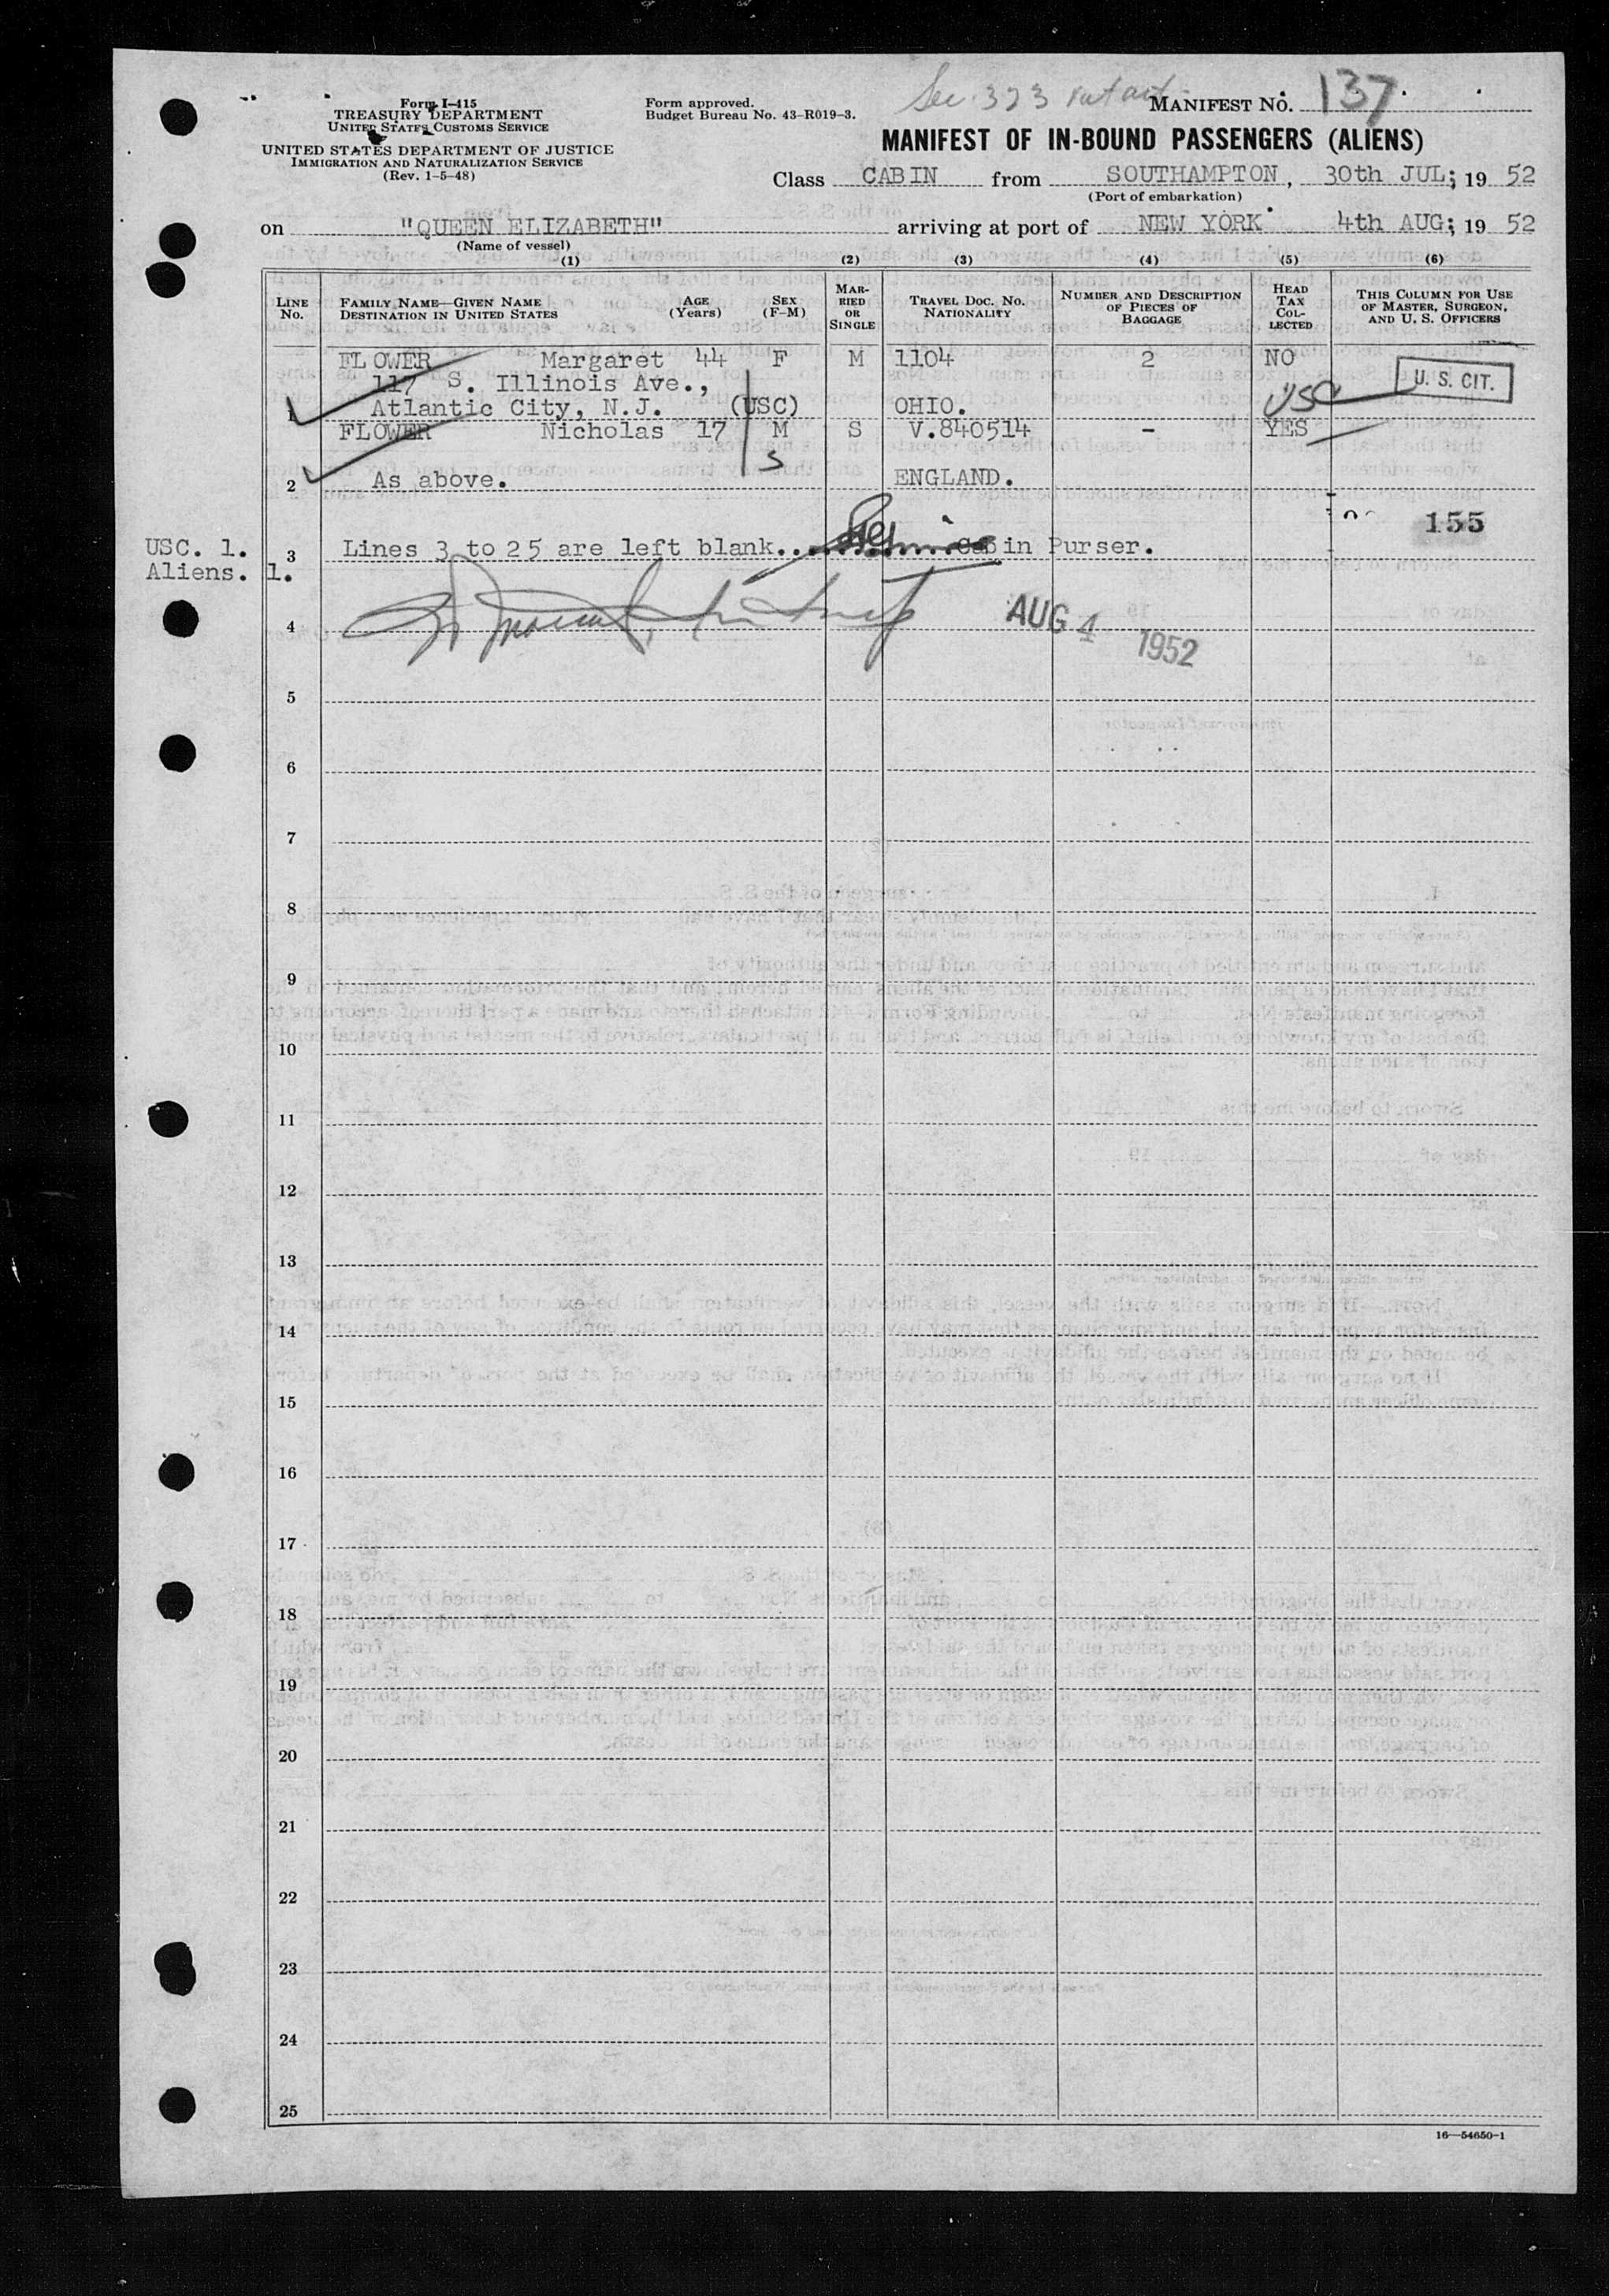 Form I-415
TREASURY DEPARTMENT
UNITED STATES CUSTOMS SERVICE
UNITED STATES DEPARTMENT OF JUSTICE
IMMIGRATION AND NATURALIZATION SERVICE
(Rev. 1-5-48)
Form approved.
Budget Bureau No. 43-R019-3.
Sec. 323
MANIFEST NO. 137
MANIFEST OF IN-BOUND PASSENGERS (ALIENS)
Class CABIN from SOUTHAMPTON, 30th JUL; 19 52
(Port of embarkation)
on "QUEEN ELIZABETH" arriving at port of NEW YORK 4th AUG; 19 52
(Name of vessel)
(1) (2) (3) (4) (5) (6)
LINE No. FAMILY NAME—GIVEN NAME DESTINATION IN UNITED STATES AGE (Years) SEX (F-M) MARRIED OR SINGLE TRAVEL DOC. NO. NATIONALITY NUMBER AND DESCRIPTION OF PIECES OF BAGGAGE HEAD TAX COLLECTED THIS COLUMN FOR USE OF MASTER, SURGEON, AND U. S. OFFICERS
FLOWER Margaret 44 F M 1104 2 NO
117 S. Illinois Ave., USC U. S. CIT.
1 Atlantic City, N.J. (USC) OHIO.
FLOWER Nicholas 17 M S V.840514 - YES
S
2 As above. ENGLAND.
155
USC. 1. 3 Lines 3 to 25 are left blank. Cabin Purser.
Aliens. 1.
4 AUG 4 1952
5
6
7
8
9
10
11
12
13
14
15
16
17
18
19
20
21
22
23
24
25
16—54650-1